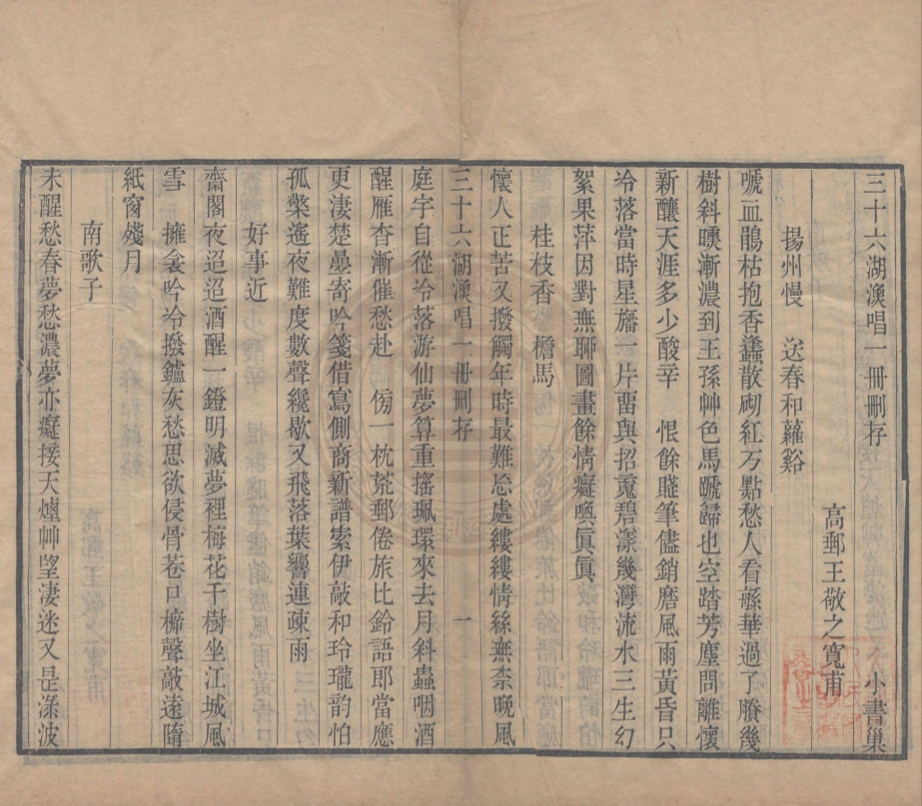 三十六湖漁唱一冊刪存　小書巢
高郵王敬之寬甫
揚州慢　送春和蘿谿
嗁血鵑枯抱香蠭散砌紅万點愁人看緐華過了賸幾
樹斜曛漸濃到王孫艸色馬蹏歸也空踏芳塵問離懷
新釀天涯多少酸辛　恨餘賸筆儘銷磨風雨黃昏只
冷落當時星旛一片畱與招䰟碧漾幾灣流水三生幻
絮果萍因對無聊圖畫餘情癡喚眞眞
桂枝香　檐馬
懷人正苦又撥觸年時最難忘處縷縷情絲無柰晚風
三十六湖漁唱一冊刪存　一
庭宇自從冷落游仙夢算重搖珮環來去月斜蟲咽酒
醒雁杳漸催愁赴　傍一枕荒郵倦旅比鈴語郎當應
更淒楚㬪寄吟箋借寫側商新譜索伊敲和玲瓏韵怕
孤檠遙夜難度數聲纔歇又飛落葉響連疎雨
好事近
齋閣夜迢迢酒醒一鐙明滅夢裡梅花千樹坐江城風
雪　擁衾吟冷撥鑪灰愁思欲侵骨巷口柝聲敲遠隋
紙窗殘月
南歌子
未醒愁春夢愁濃夢亦癡接天煙艸朢淒迷又是淥波